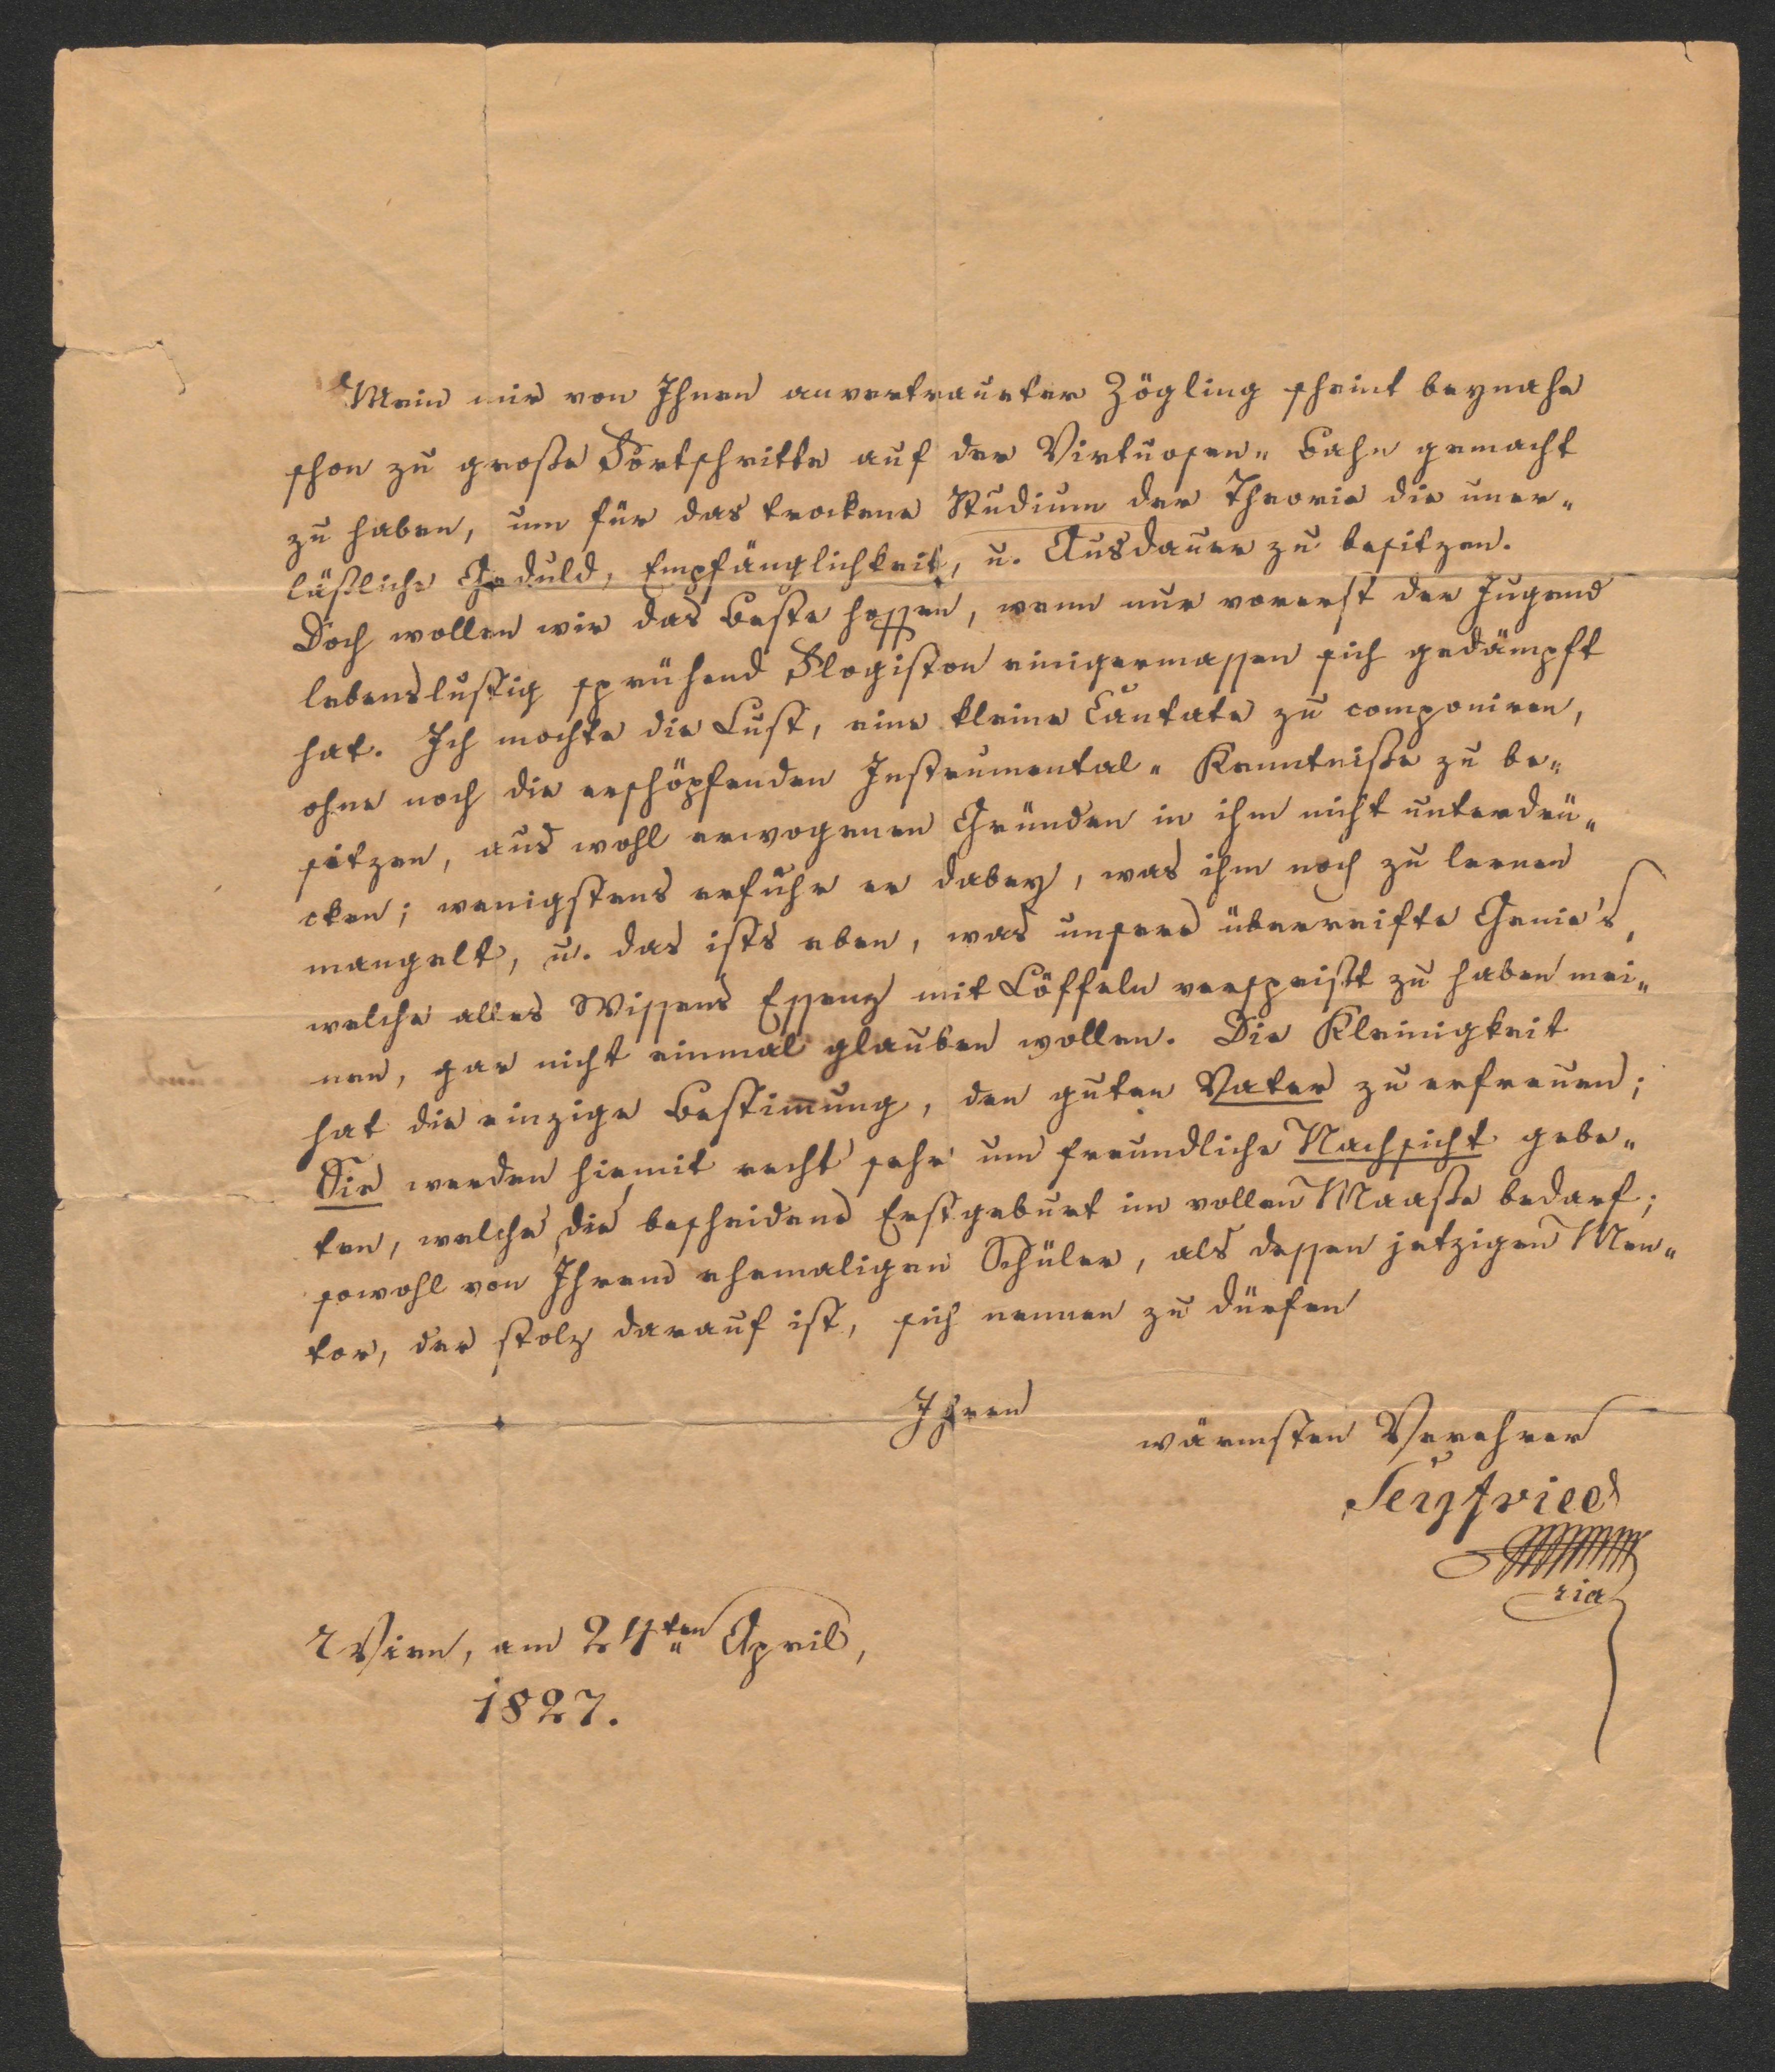 Mein mir von Ihnen anvertrauter Zögling scheint beynahe
schon zu große Fortschritte auf der Virtuosen- Bahn gemacht
zu haben, um für das trockene Studium der Theorie die uner-
läßliche Geduld, Empfänglichkeit, u. Ausdauer zu besitzen.
Doch wollen wir das Beste hoffen, wenn nur vorerst der Jugend
lebenslustig sprühend Flogiston einigermassen sich gedämpft
hat. Ich mochte die Lust, eine kleine Cantate zu componiren,
ohne noch die erschöpfenden Instrumental- Kenntniße zu be-
sitzen, aus wohl erwogenen Gründen in ihm nicht unterdrü-
cken; wenigstens erfuhr er dabey, was ihm noch zu lernen
mangelt, u. das ists eben, was unsere überreifte Genie's,
welche alles Wissens Essenz mit Löffeln verspeist zu haben mei-
nen, gar nicht einmal glauben wollen. Die Kleinigkeit
hat die einzige Bestimmung, den guten Vater zu erfreuen;
Sie werden hiemit recht sehr um freundliche Nachsicht gebe-
ten, welche die bescheidene Erstgeburt im vollen Maaße bedarf;
sowohl von Ihrem ehemaligen Schüler, als dessen jetzigen Men-
tor, der stolz darauf ist, sich nennen zu dürfen
Ihren
wärmsten Verehrer
Seyfried
ria
Wien, am 24ten April,
1827.